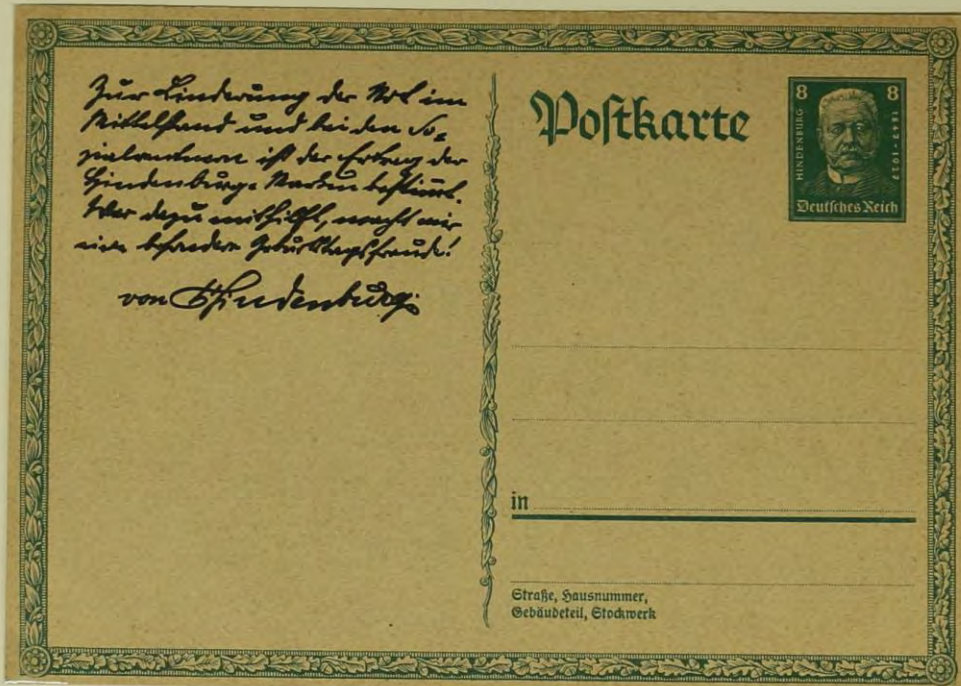 Zur Linderung der Not im
Mittelstand und bei den So-
zialrentnern ist der Ertrag der
Hindenburg-Marken bestimmt.
Wer dazu mithilft, macht mir
eine besondere Geburtstagsfreude!
von Hindenburg.
Postkarte
8 8
HINDENBURG
1847-1927
Deutsches Reich
in
Straße, Hausnummer,
Gebäudeteil, Stockwerk